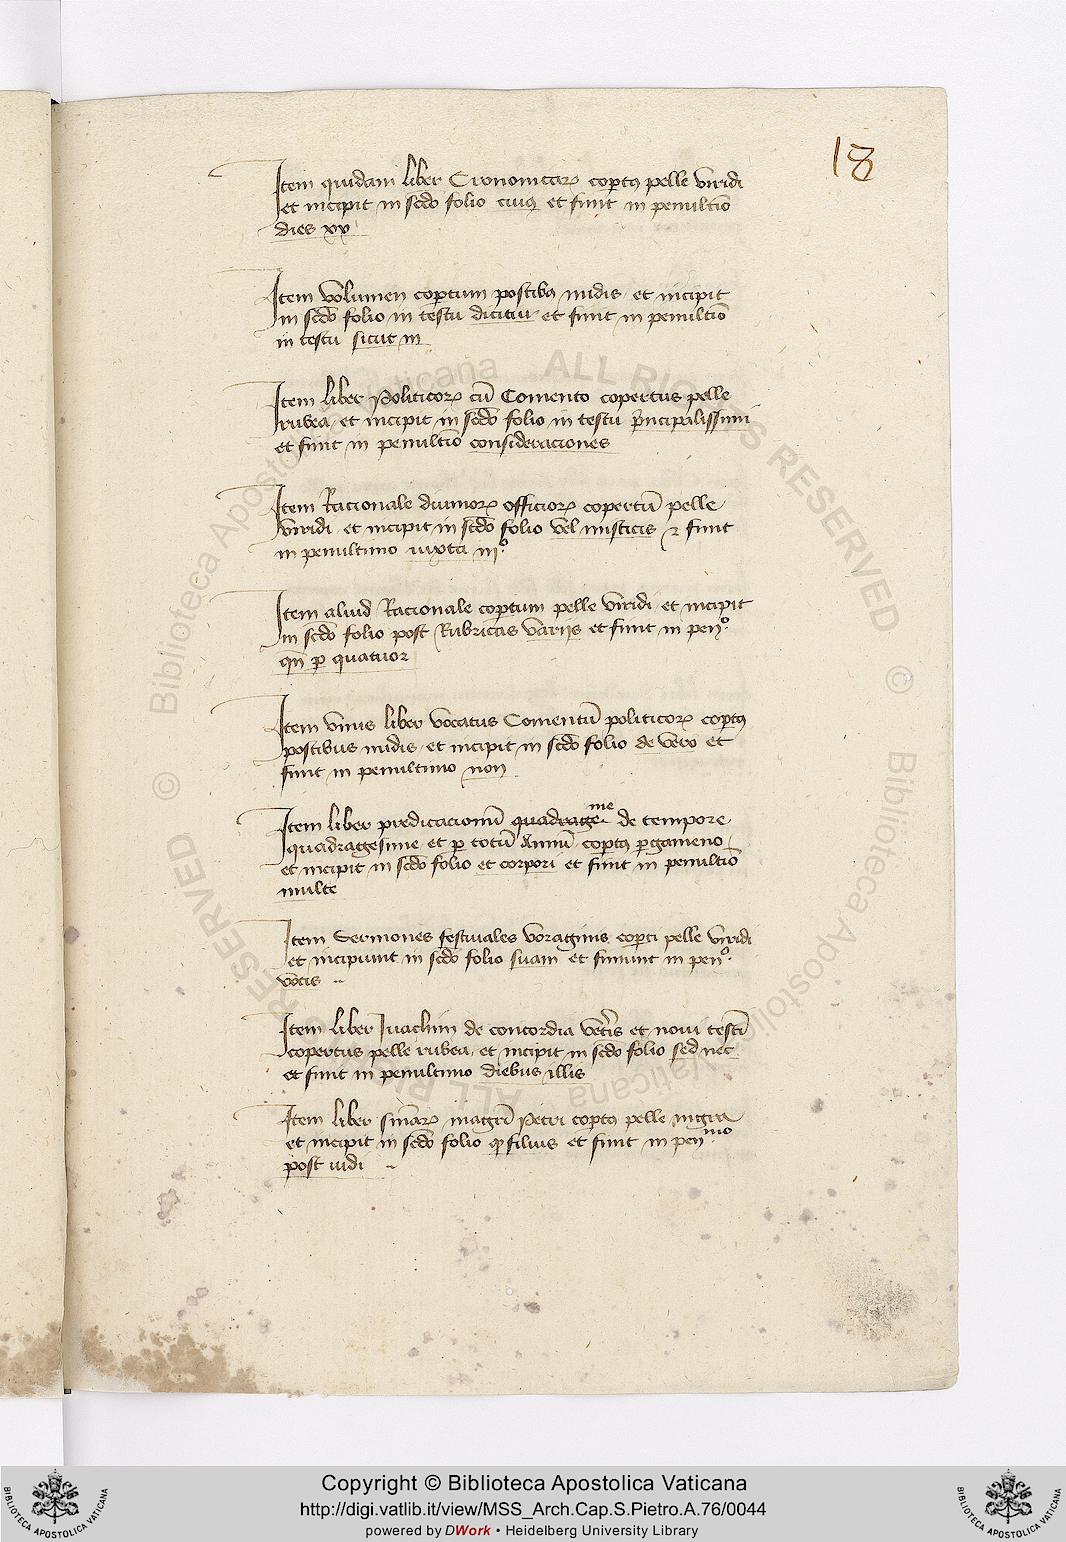 18
Item quidam liber Cronomcarꝫ copt9 pelle viridi
et incipit in scdo folio cuiusq et finit in penultio
dies xx
Item volumen coptum postib9 nudis et incipit
in scdo folio in testu dicitiu et finit in penultio
in testu sicut in
Item liber Politicorꝫ cū Comento copertus pelle
rubea et incipit in scdo folio in testu principalissimi
et finit in penultio consideraciones
Item Racionale diuinorꝫ officiorꝫ copertū pelle
viridi et incipit in scdo folio vel misticis ⁊ finit
in penultimo iuxta iijº
Item aliud Racionale coptum pelle viridi et incipit
in scdo folio post Rubricas variis et finit in penº
qn̄ p quatuor
Item vnus liber vocatus Comentū politicorꝫ copt9
postibus nudis et incipit in scdo folio de vero et
finit in penultimo non
Item liber predicacionū quadrageme de tempore
quadragesime et p totū Annū copt9 pgameno
et incipit in scdo folio et corpori et finit in penultio
multe
Item Sermones festiuales voraginis copti pelle viridi
et incipiunt in scdo folio suam et finiunt in penº
votis
Item liber Ivachim de concordia vetis et noui testi
copertus pelle rubea et incipit in scdo folio sed nec
et finit in penultimo diebus illis
Item liber sniarꝫ magri Petri copt9 pelle nigra
et incipit in scdo folio filius et finit in penmo
post iudi
Biblioteca Apostolica Vaticana ALL RIGHTS RESERVED ©
Biblioteca Apostolica Vaticana ALL RIGHTS RESERVED ©
Copyright © Biblioteca Apostolica Vaticana
http://digi.vatlib.it/view/MSS_Arch.Cap.S.Pietro.A.76/0044
powered by DWork • Heidelberg University Library
BIBLIOTECA APOSTOLICA VATICANA
BIBLIOTECA APOSTOLICA VATICANA